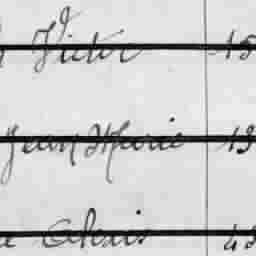 Victor 15
Jean Marie 19
Alexis 43